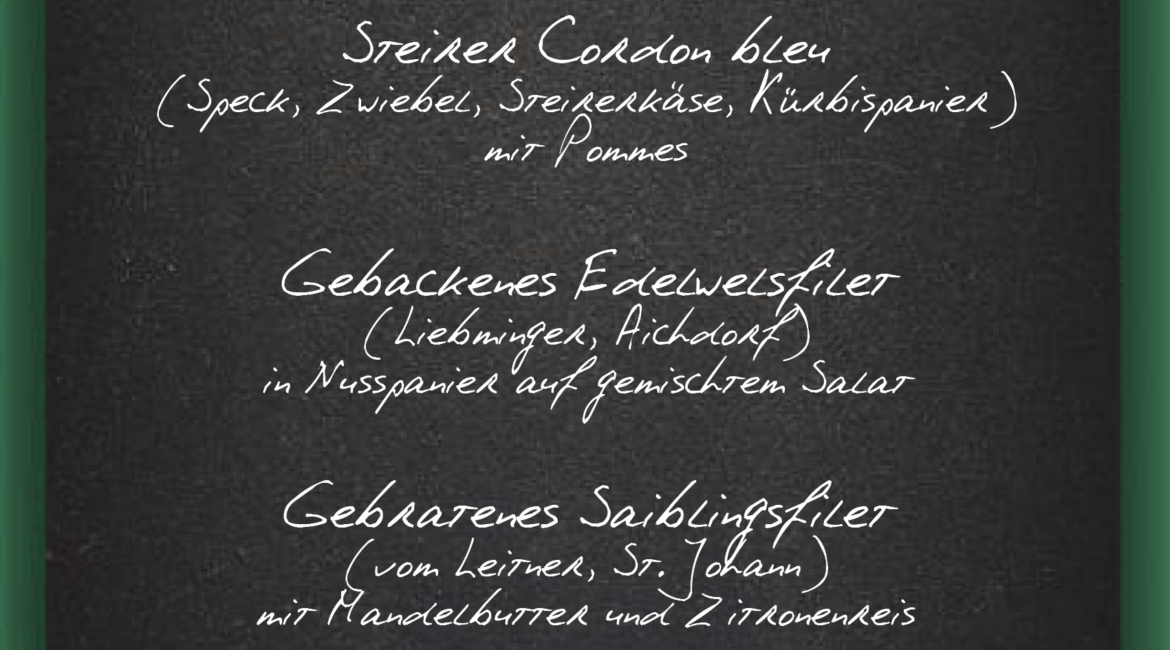 Steirer Cordon bleu
(Speck, Zwiebel, Steirerkäse, Kürbispanier)
mit Pommes
Gebackenes Edelwelsfilet
(Liebminger, Aichdorf)
in Nusspanier auf gemischtem Salat
Gebratenes Saiblingsfilet
(vom Leitner, St. Johann)
mit Mandelbutter und Zitronenreis